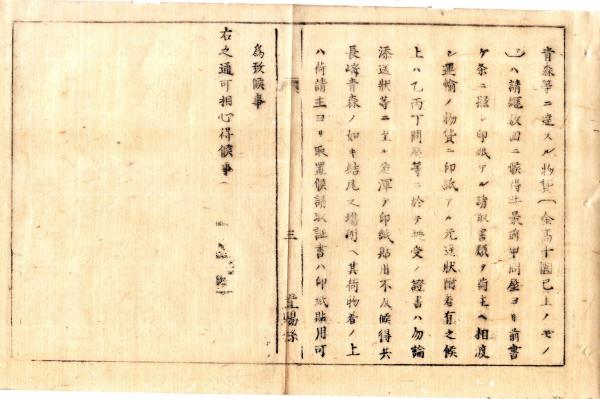 青森等ニ達スル物貨(金高十圓已上ノモノ
)ハ請繼数回ニ候得共最前甲問屋ヨリ前書
ケ条ニ照シ印紙アル請取書類ヲ荷主ヘ相渡
シ運輸ノ物貨ニ印紙アル元送状附着有之候
上ハ乙丙丁問屋等ニ於テ授受ノ證書ハ勿論
添送状等ニ至ル迄渾テ印紙貼用不及候得共
長崎青森ノ如キ結尾之場所ヘ其荷物着ノ上
ハ荷請主ヨリ取置候請取証書ハ印紙貼用可
三
置賜縣
為致候事
右之通可相心得候事